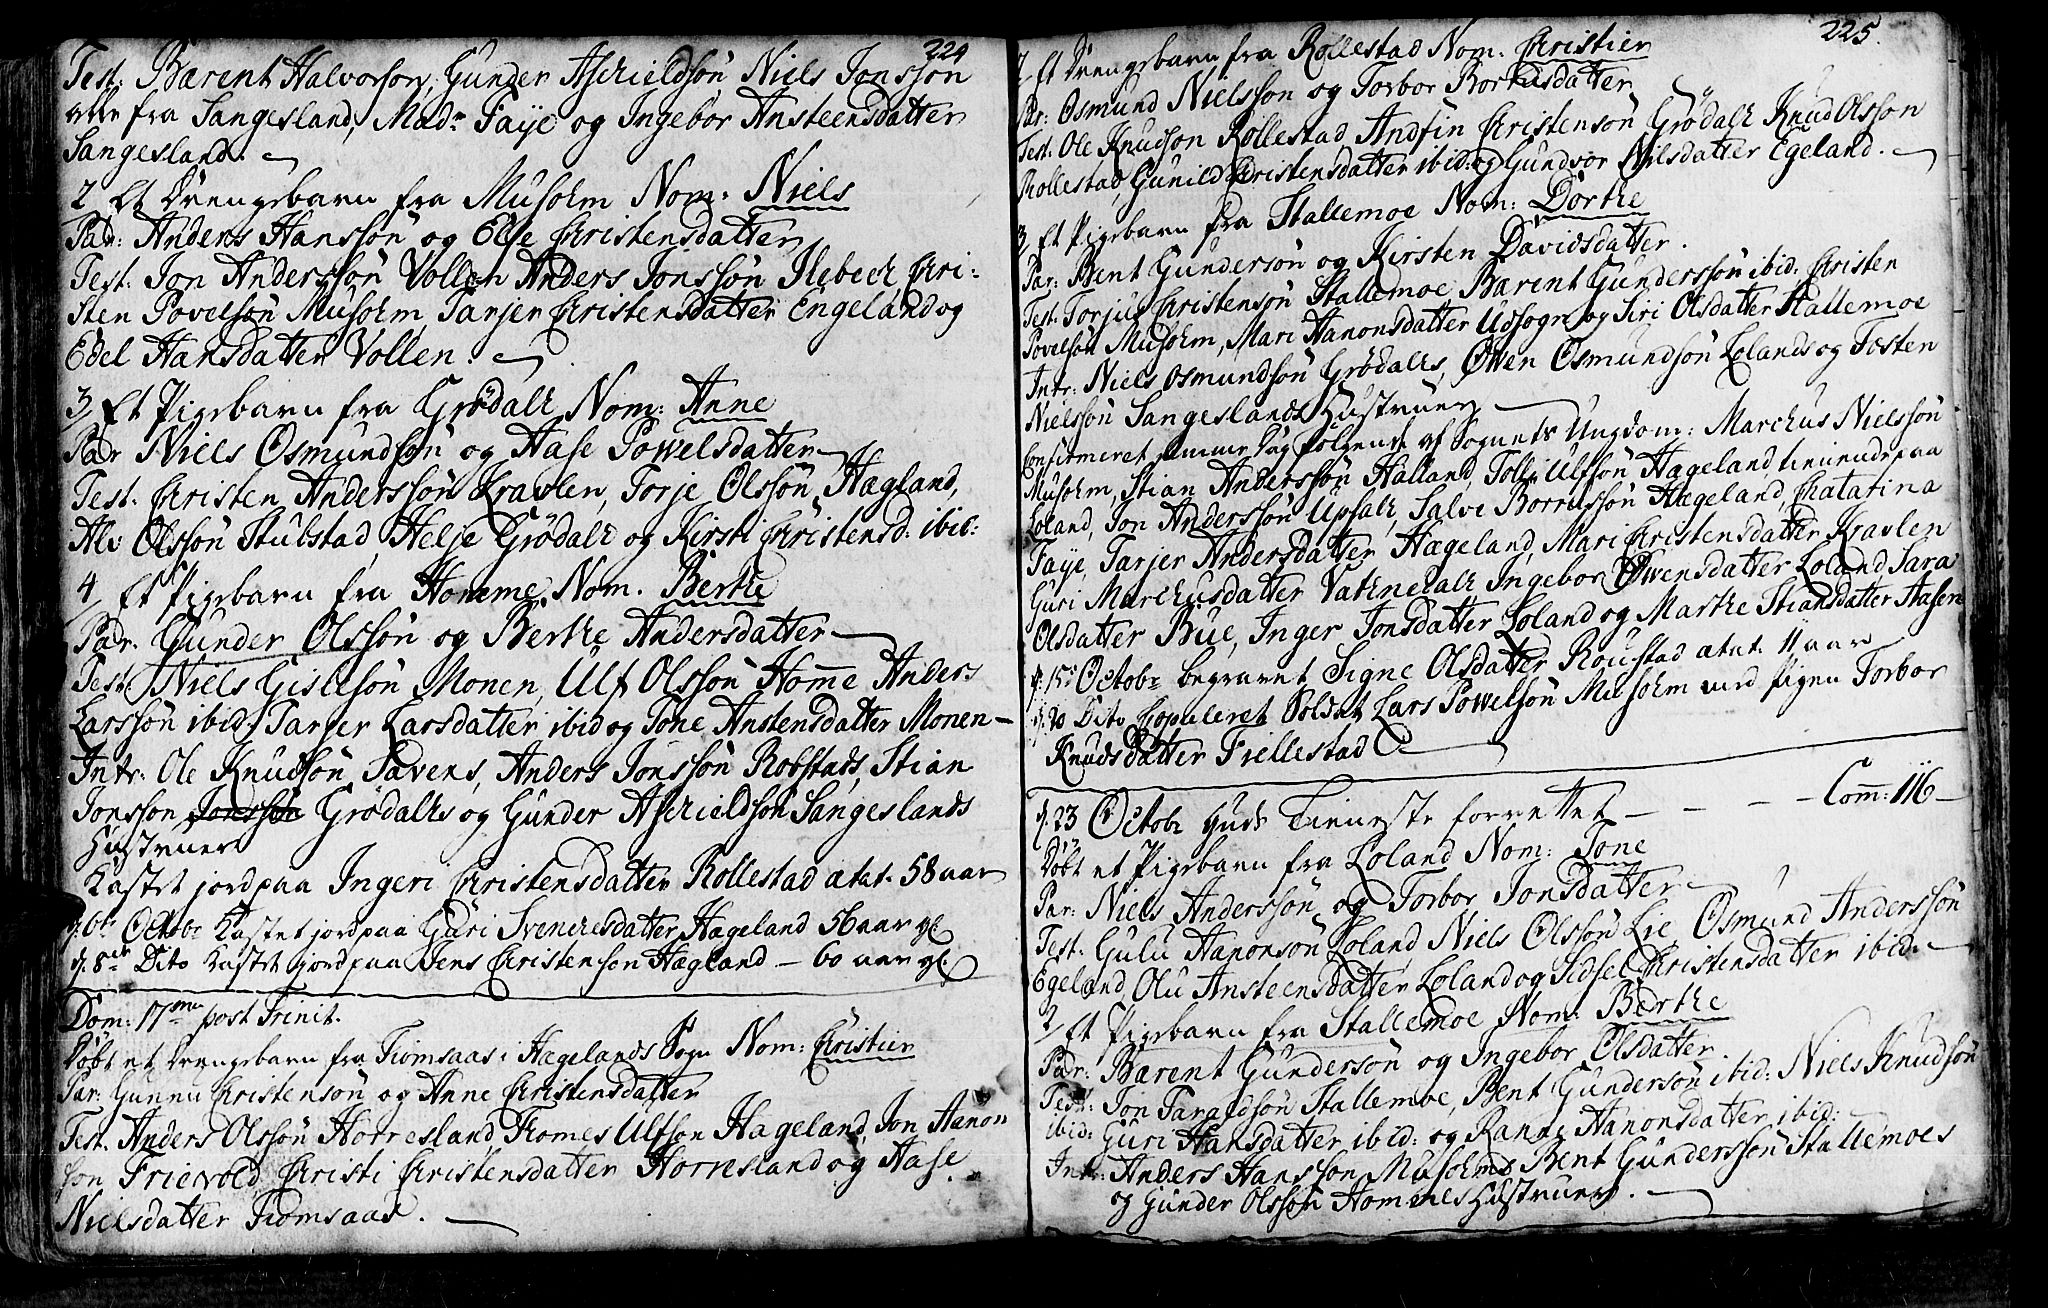 224
Test: Bærent Halvorson, Gunder Aschieldsön Niels Jonsson
alle fra Sangesland, Mad.e Faye og Ingebor Ansteensdatter
Sangesland.
2 Et Drengebarn fra Musolm Nom: Niels
Padr: Anders Hanssön og Else Christensdatter
Test: Jon Anderssön Vollen Anders Jonssön Ilebeck, Chri-
sten Povelsön Musolm, Tarjer Christensdatter Engeland og
Edel Hansdatter Vollen.
3/ Et Pigebarn fra Grödale Nom: Anne
Padr Niels Osmundsön og Aase Powelsdatter
Test: Christen Anderssön Kravlen, Torje Olssön Hægland,
Alv Olssön Stubstad, Helje Grödale og Kirsti Christensd: ibid:
4/ Et Pigebarn fra Homme Nom. Berthe
Padr. Gunder Olssön og Berthe Andersdatter
Test Niels Gislesön Monen, Ulf Olssön Home Anders
Larssön ibid, Tarjer Larsdatter ibid og Tone Anstensdatter Monen
Intr: Ole Knudsön Savens, Anders Jonssön Robstads, Stian
Jonsson Jonssön Grödales og Gunder Aschieldsön Sangeslands
Hustruer
Kastet jord paa Ingeri Christensdatter Rollestad ætat. 58 aar
d. 6te Octobr Kastet jord paa Guri Svenchesdatter Hageland 56 aar gl
d. 8de Dito Kastet jord paa Jens Christenson Hægland – 60 aar gl
Dom: 17me post Trinit.
Döbt et Drengebarn fra Tiomsaas i Hægelands Sogn Nom: Christien
Par: Gunnu Christensön og Anne Christensdatter
Test. Anders Olssön Horresland, Tiomes Ulfsön Hageland, Jon Aanon
son Frievold Christi Christensdatter Horresland og Aase
Nielsdatter Tiomsaas.
225.
2/ Et Drengebarn fra Rollestad Nom: Christien
Par: Osmund Nielsson og Torbor Borrusdatter
Test: Ole Knudson Rollestad Andfin Christensön Grödale Knud Olsson
Rollestad, Gunild Christensdatter ibid: og Gundvor Nilsdatter Egeland.
3/ Et Pigebarn fra Stallemoe Nom: Dorthe
Par: Bent Gundersön og Kirsten Davidsdatter.
Test: Torjus Christensön Stallemoe Bærent Gunderssön ibid: Christen
Povelsön Musolm, Mari Aanonsdatter Udsogn og Siri Olsdatter Stallemoe
Intr: Niels Osmundsön Grödales, Öwen Osmundsön Lolands og Tosten
Nielssön Sangeslands Hustruer
Confirmeret samme Dag fölgende af Sognets Ungdom: Marchus Nielssön
Musolm, Stian Anderssön Halland, Tolli Ulfsön Hageland tienende paa
Loland, Jon Anderssön Upsale, Salve Borrussön Hægeland, Chatarina
Faye, Tarjer Andersdatter Hægeland, Mari Christensdatter Kravlen
Guri Marchusdatter Vatnedale Ingebor Öwensdatter Loland Sara
Olsdatter Bue, Inger Jonsdatter Loland og Marthe Stiansdatter Aasen
d. 15 Octobr begravet Signe Olsdatter Roustad ætat. 11 aar
d. 20 Dito Copuleret Soldat Lars Powelsön Musolm med Pigen Torbor
Knudsdatter Fiellestad
d. 23 Octobr Guds Tieneste forrettet – – – – Com: 116 –
Döbt et Pigebarn fra Loland Nom: Tone
Par: Niels Anderssön og Torbor Jonsdatter
Test: Gulu Aanonsön Loland, Niels Olssön Lie Osmund Anderssön
Egeland, Olu Ansteensdatter Loland og Sidsel Christensdatter ibid:
2/ Et Pigebarn fra Stallemoe Nom: Berthe
Padr: Bærent Gundersön og Ingebor Olsdatter.
Test: Jon Taraldsön Stallemoe, Bent Gundersön ibid: Niels Knudsön
ibid: Guri Hansdatter ibid: og Ranni Aanonsdatter ibid:
Int: Anders Hansson Musolms Bent Gunderssön Stallemoes
og Gunder Olssön Hommes Hustruer.